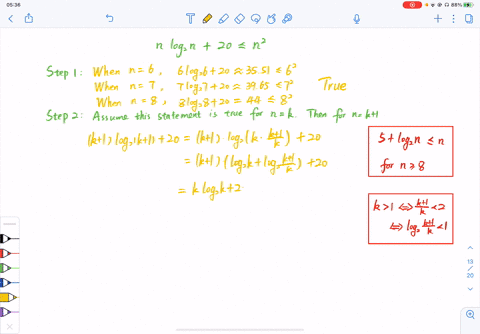 05:36
88%
n log₂n + 20 ≤ n²
Step 1: When n=6, 6log₂6+20≈35.51≤6²
When n=7, 7log₂7+20≈39.65≤7² True
When n=8, 8log₂8+20=44≤8²
Step 2: Assume this statement is true for n=k. Then for n=k+1
(k+1) log₂(k+1)+20 = (k+1) log₂(k·(k+1)/k) + 20
= (k+1) (log₂k+log₂(k+1)/k) + 20
= k log₂k+2
5+log₂n ≤ n
for n≥8
k>1 ⇔ (k+1)/k <2
⇔ log₂(k+1)/k <1
13
20